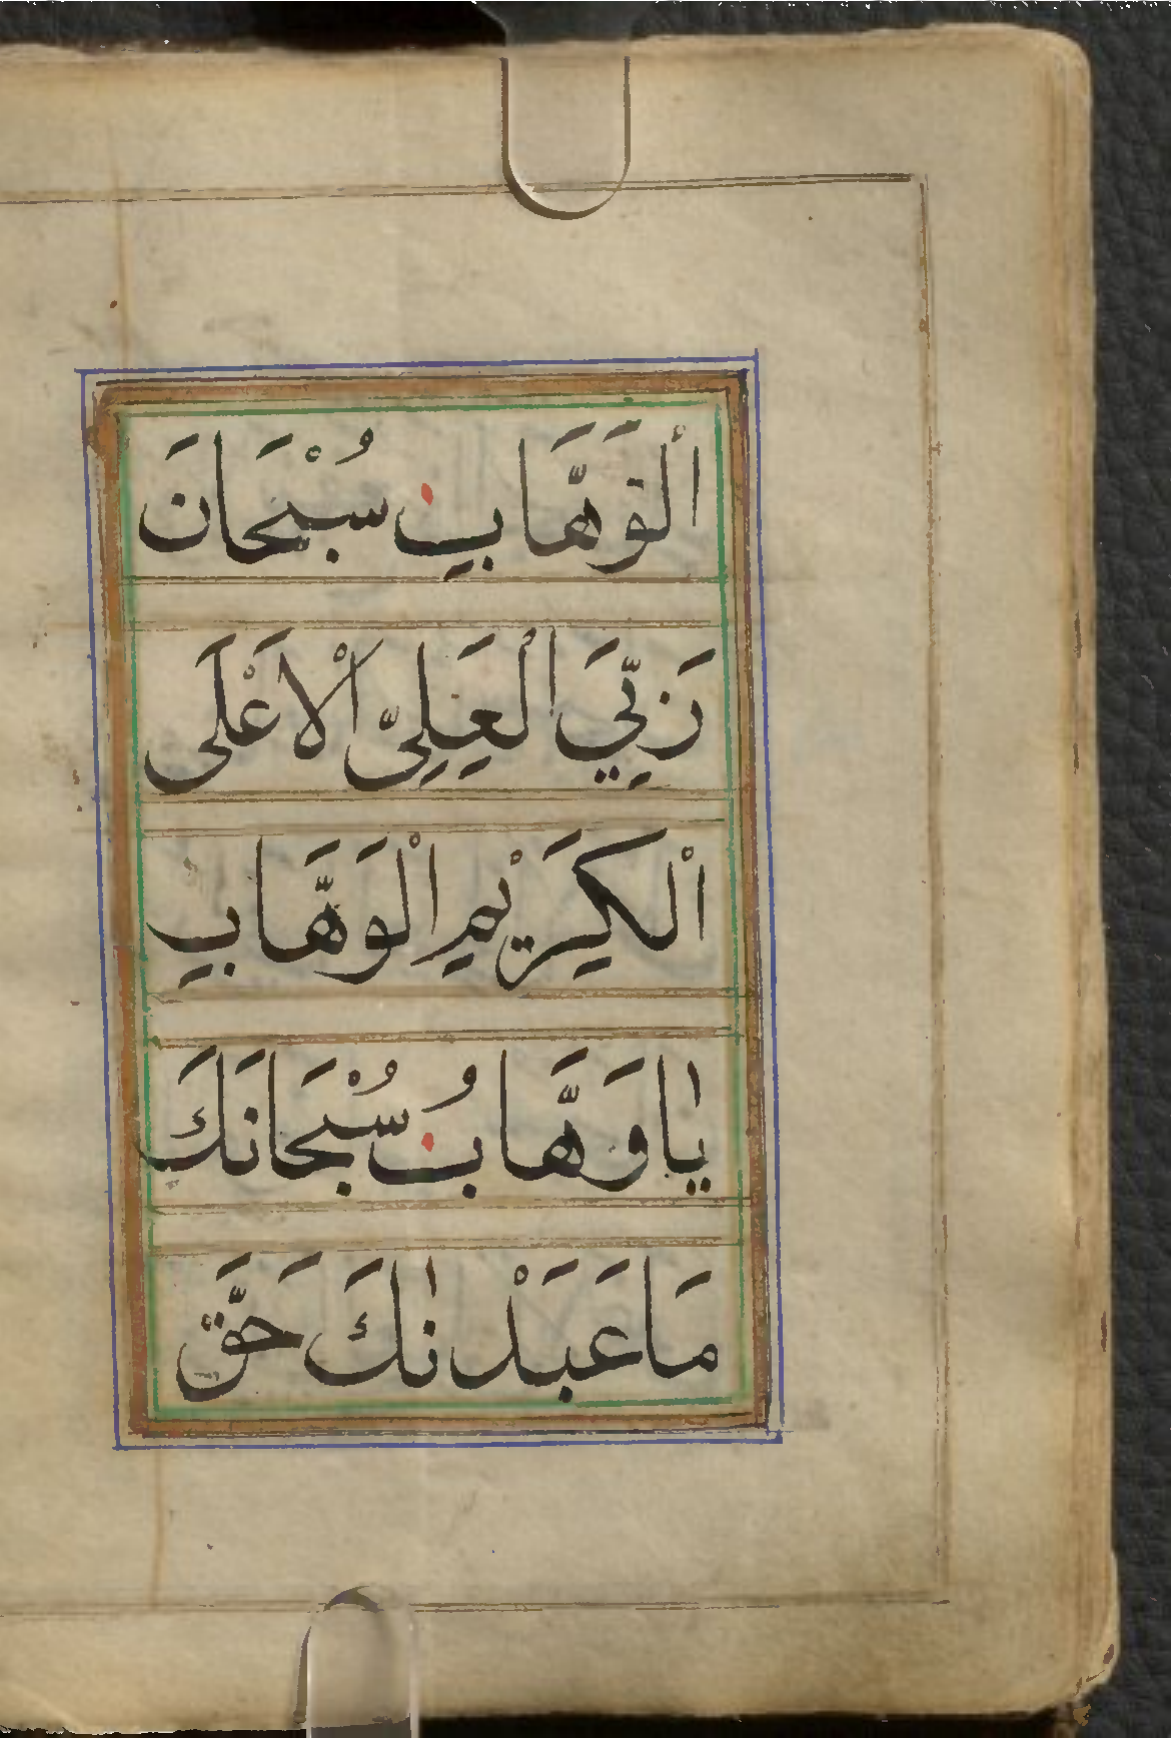 اَلْوَهَّابِ سُبْحَانَ
رَبِّيَ الْعَلِيِّ الْاَعْلَى
اَلْكَرِيْمِ الْوَهَّابِ
يَاوَهَّابُ سُبْحَانَكَ
مَاعَبَدْنَاكَ حَقَّ